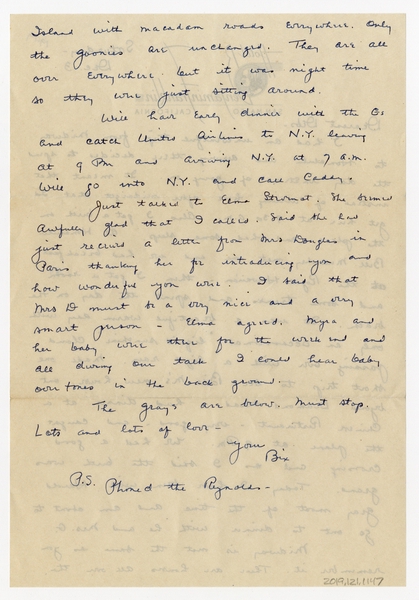 Island with macadam roads everywhere. Only
the goonies are unchanged. They are all
over everywhere but it was night time
so they were just sitting around.
Will have early dinner with the Gs
and catch United Airlines to N.Y. leaving
at 9 PM and arriving N.Y. at 7 a.m.
Will go into N.Y. and call Caddy.
Just talked to Elma. She seemed
awfully glad that I called. Said she had
just received a letter from Mrs Douglas in
Paris thanking her for introducing you and
how wonderful you were. I said that
Mrs D must be a very nice and a very
smart person – Elma agreed. Myra and
her baby were there for the week end and
all during our talk I could hear baby
overtones in the back ground.
The Grays are below. Must stop.
Lots and lots of love –
your
Bix
P.S. Phoned the Reynolds –
2019.121.1117